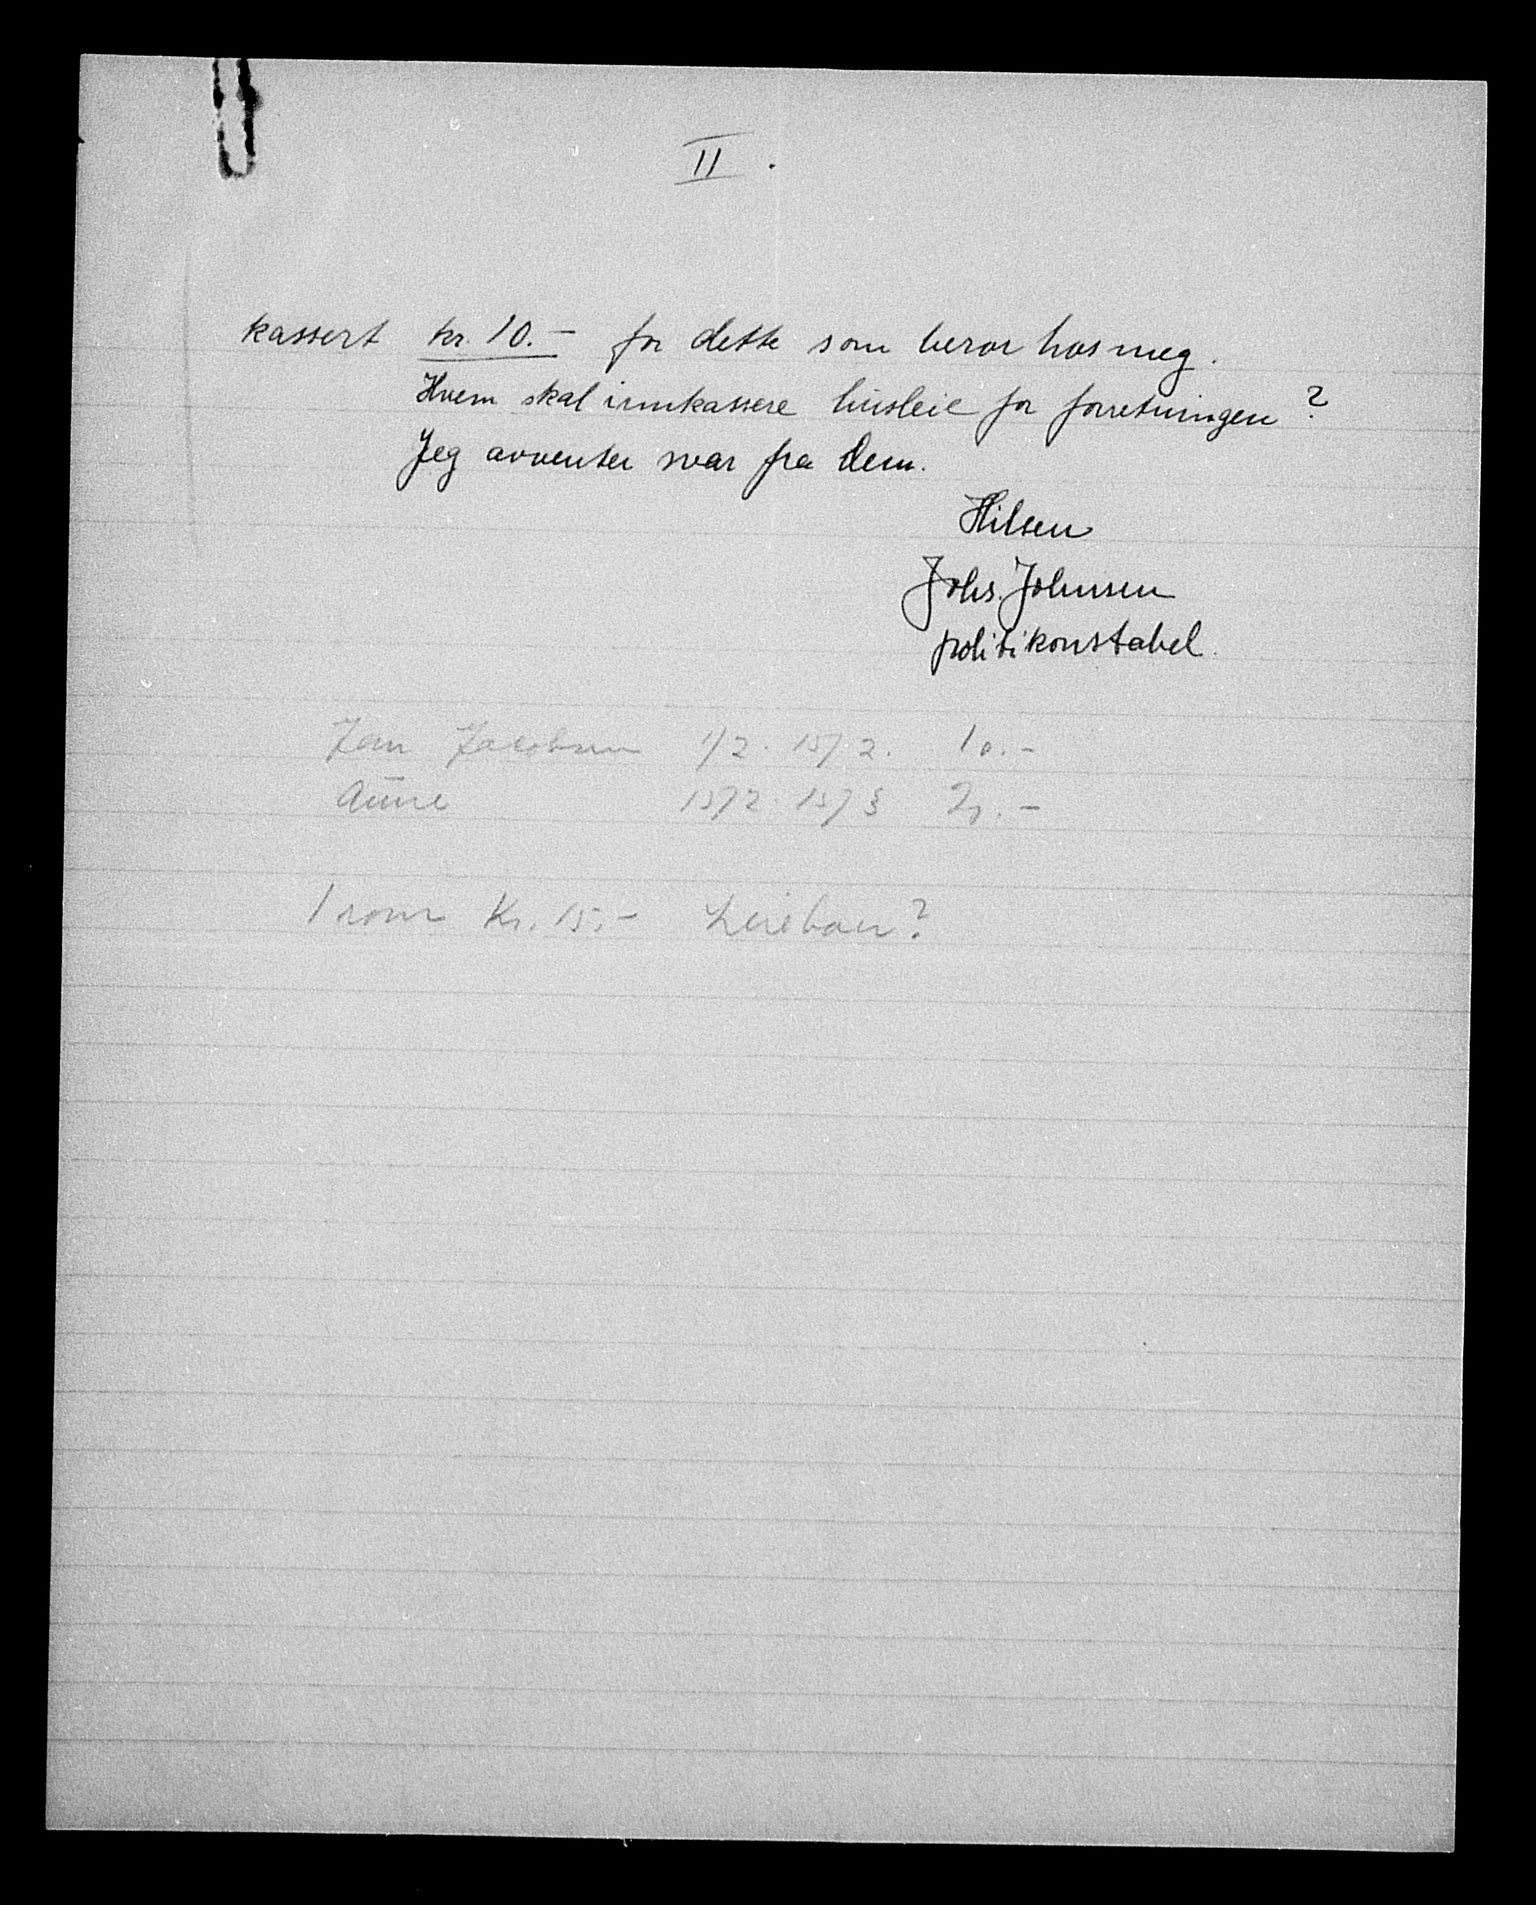 II.
kassert kr. 10.- for dette som beror hos meg.
Hvem skal innkassere husleie for forretningen?
Jeg avventer svar fra Dem.
Hilsen
Johs. Johnsen
politikonstabel.
Jan Jacobsen 1/2. 15/2. 10.-
Aune 15/2. 15/3
1 rom Kr. 15.- Leieboer?